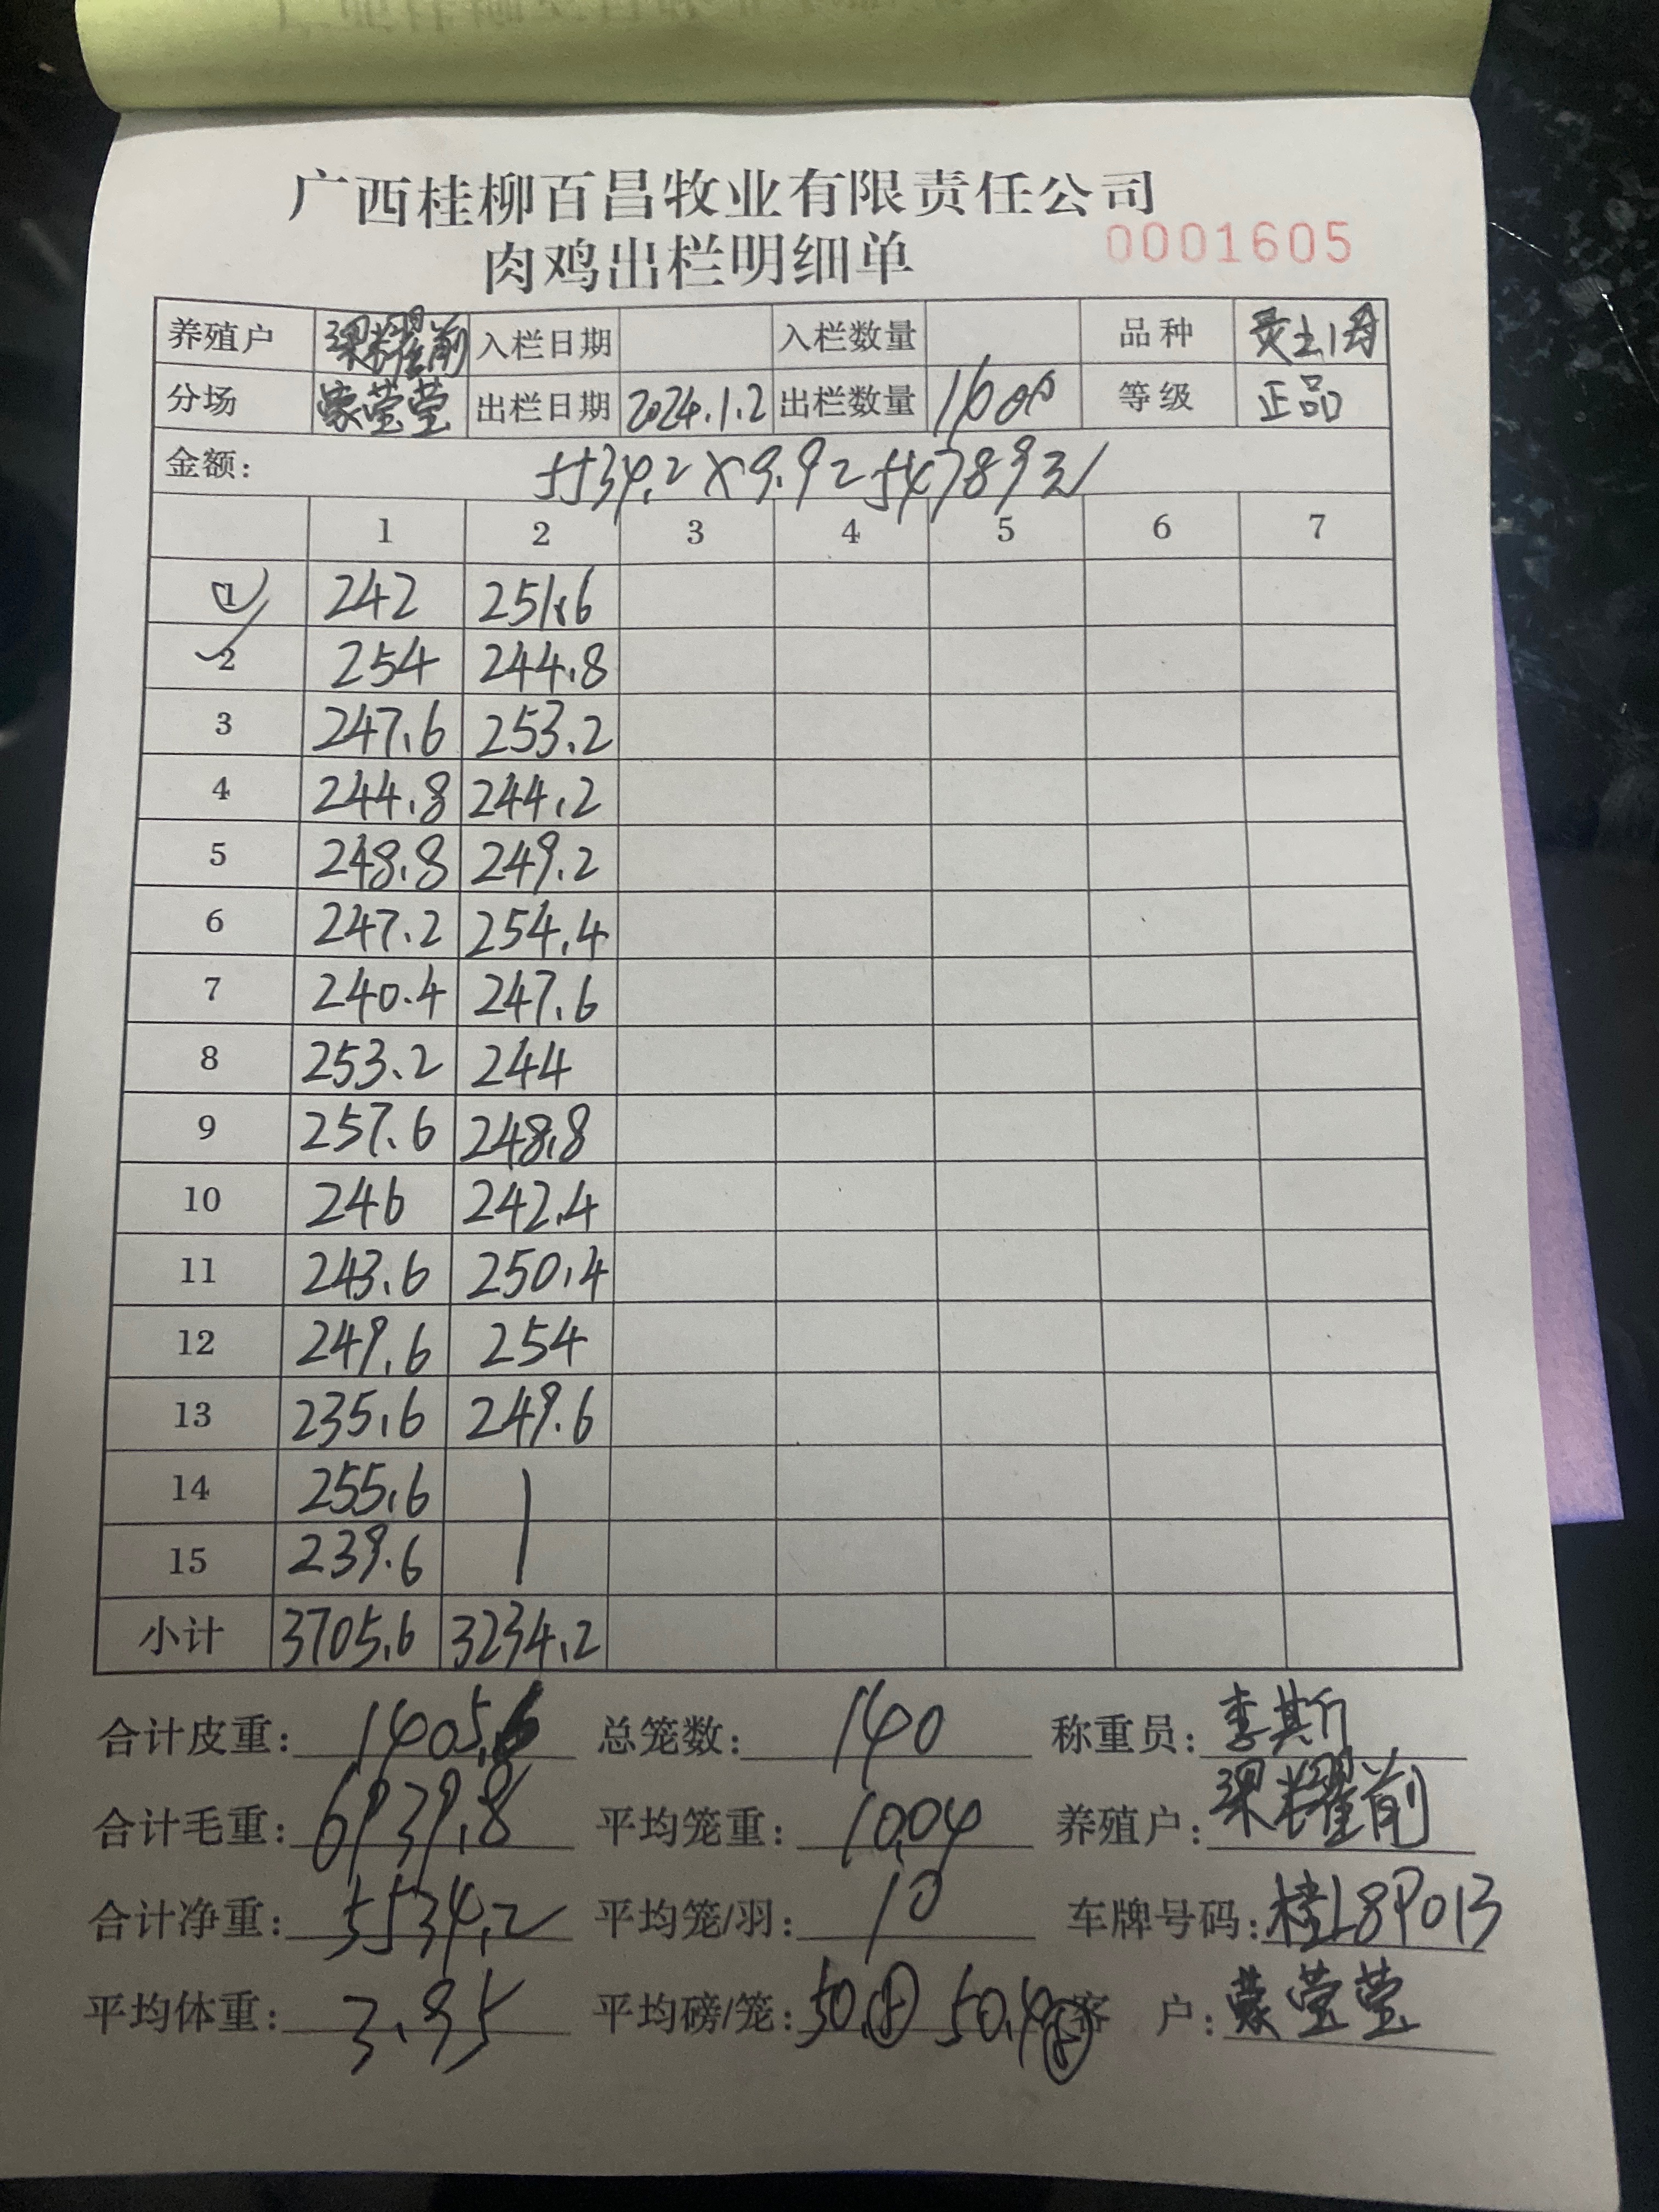 广西桂柳百昌牧业有限责任公司
肉鸡出栏明细单 0001605
养殖户 梁耀前 入栏日期 入栏数量 品种 灵土1母
分场 蒙莹莹 出栏日期 2024.1.2 出栏数量 等级 正品
金额: 5534.2×9.9=54789元
1 2 3 4 5 6 7
1 242 251.6
2 254 244.8
3 247.6 253.2
4 244.8 244.2
5 248.8 249.2
6 247.2 254.4
7 240.4 247.6
8 253.2 244
9 257.6 248.8
10 246 242.4
11 243.6 250.4
12 249.6 254
13 235.6 249.6
14 255.6
15 239.6
小计 3705.6 3234.2
合计皮重: 1405.6 总笼数: 140 称重员: 李斯
合计毛重: 6939.8 平均笼重: 10.04 养殖户: 梁耀前
合计净重: 5534.2 平均笼/羽: 10 车牌号码: 桂L8P013
平均体重: 3.95 平均磅/笼: 50. 50.4 客 户: 蒙莹莹